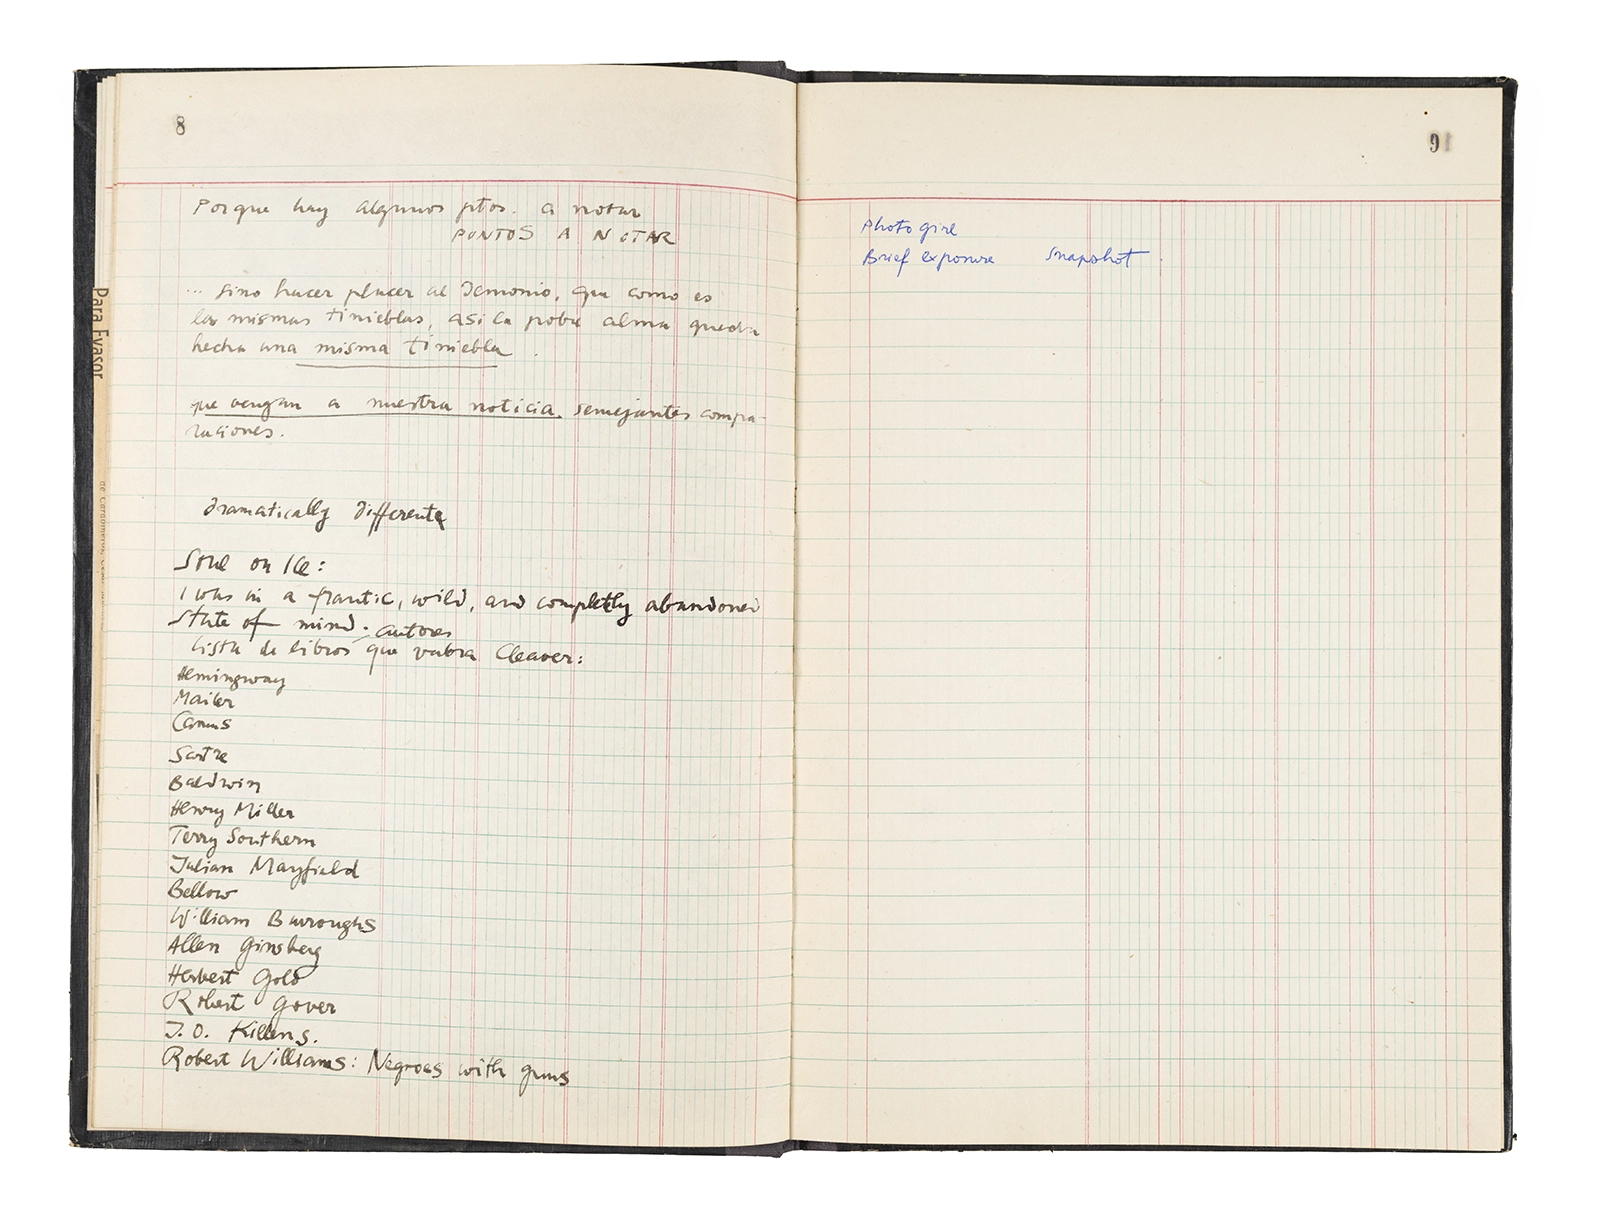 8
Porque hay algunos ptos. a notar
PUNTOS A NOTAR
... sino hacer placer al Demonio, que como es
las mismas tinieblas, asi la pobre alma queda
hecha una misma tiniebla.
que vengan a nuestra noticia semejantes compa-
raciones.
Dramatically Differente
Soul on Ice:
I was in a frantic, wild, and completly abandoned
state of mind.
autores
Lista de libros que valora Cleaver:
Hemingway
Mailer
Camus
Sartre
Baldwin
Henry Miller
Terry Southern
Julian Mayfield
Bellow
William Burroughs
Allen Ginsberg
Herbert Gold
Robert Gover
J.O. Killens.
Robert Williams: Negroes with guns
Para Evasor
9
Photo girl
Brief exposure snapshot